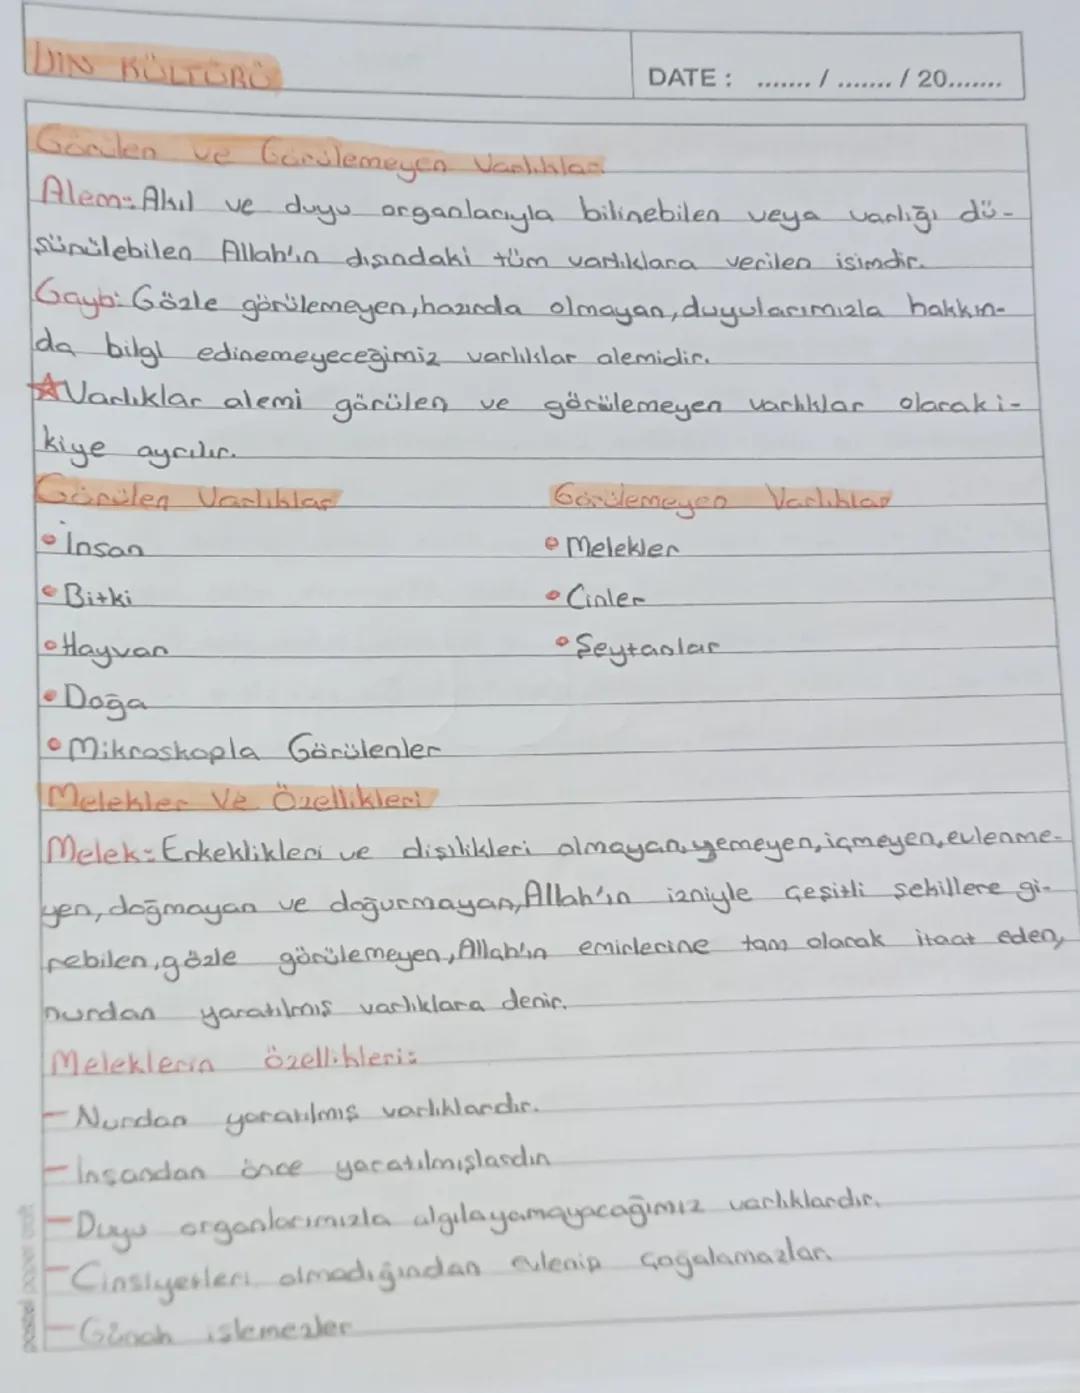 DİN KÜLTÜRÜ
DATE : ....... / ....... / 20.......
Görülen ve Görülemeyen Varlıklar
Alem: Akıl ve duyu organlarıyla bilinebilen veya varlığı dü-
şünülebilen Allah'ın dışındaki tüm varlıklara verilen isimdir.
Gayb: Gözle görülemeyen, hazırda olmayan, duyularımızla hakkın-
da bilgi edinemeyeceğimiz varlıklar alemidir.
☆Varlıklar alemi görülen ve görülemeyen varlıklar olarak i-
kiye ayrılır.
Görülen Varlıklar
• İnsan
• Bitki
• Hayvan
• Doğa
• Mikroskopla Görülenler
Görülemeyen Varlıklar
• Melekler
• Cinler
• Şeytanlar
Melekler Ve Özellikleri
Melek: Erkeklikleri ve dişilikleri olmayan, yemeyen, içmeyen, evlenme-
yen, doğmayan ve doğurmayan, Allah'ın izniyle çeşitli şekillere gi-
rebilen, gözle görülemeyen, Allah'ın emirlerine tam olarak itaat eden,
nurdan yaratılmış varlıklara denir.
Meleklerin özellikleri:
- Nurdan yaratılmış varlıklardır.
- İnsandan önce yaratılmışlardır
- Duyu organlarımızla algılayamayacağımız varlıklardır.
- Cinsiyetleri olmadığından evlenip çoğalamazlar.
- Günah işlemezler